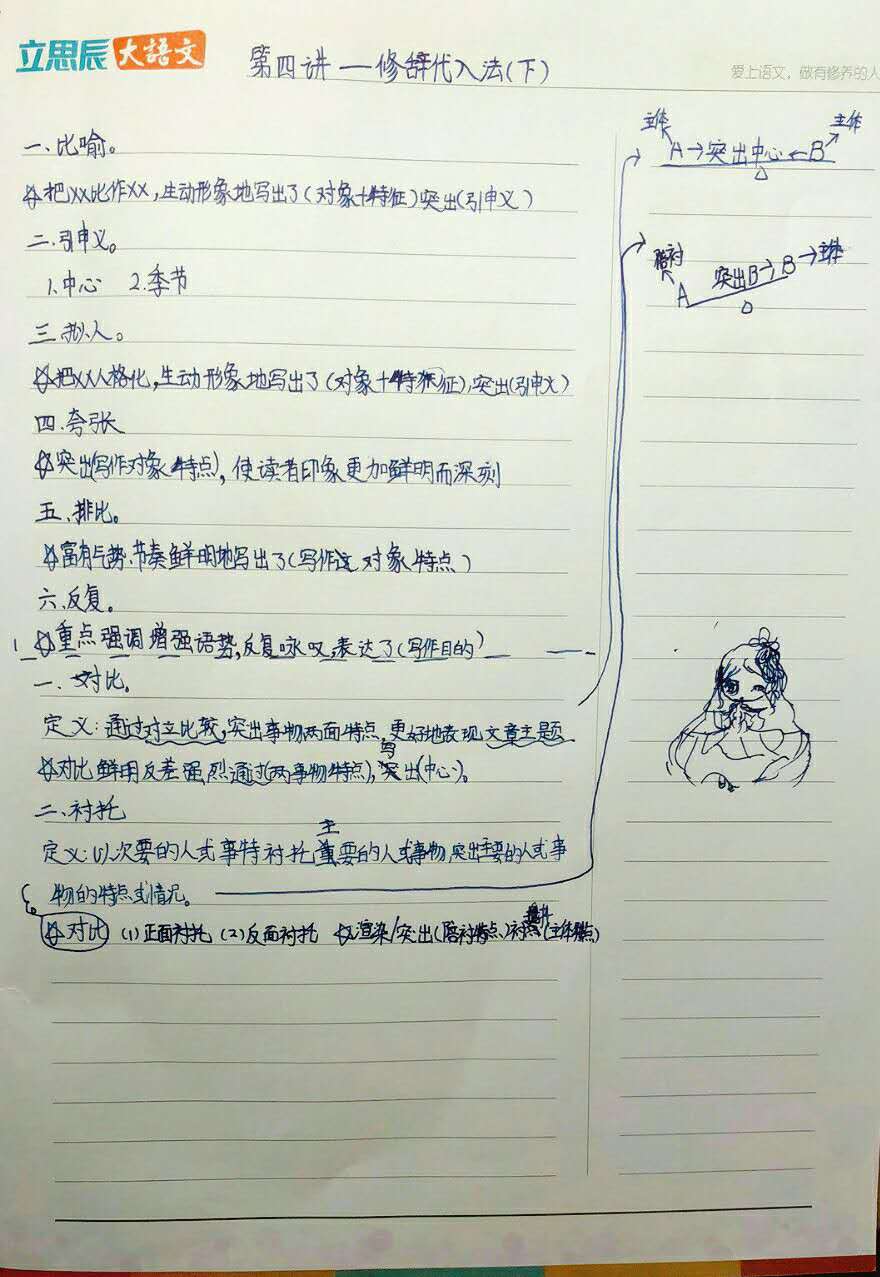 立思辰大語文
第四讲一修辞代入法(下)
爱上语文，做有修养的人
一、比喻。
把XX比作XX,生动形象地写出了(对象+特征)突出(引申义)
二、引申义。
1.中心 2.季节
三、拟人。
把XX人格化,生动形象地写出了(对象+特征),突出(引申义)
四、夸张
突出(写作对象+特点),使读者印象更加鲜明而深刻
五、排比。
富有气势、节奏鲜明地写出了(写作对象+特点)
六、反复。
重点强调增强语势,反复咏叹,表达了(写作目的)
一、对比。
定义:通过对立比较,突出事物两面特点,更好地表现文章主题
对比鲜明反差强烈通过(两事物特点),突出(中心)。
二、衬托
定义:以次要的人或事特衬托主要的人或事物,突出主要的人或事
物的特点或情况。
对比 (1)正面衬托 (2)反面衬托 渲染/突出(陪衬特点)衬托(主体特点)
主体 主体
A→突出中心←B
陪衬 突出B→B→主体
A